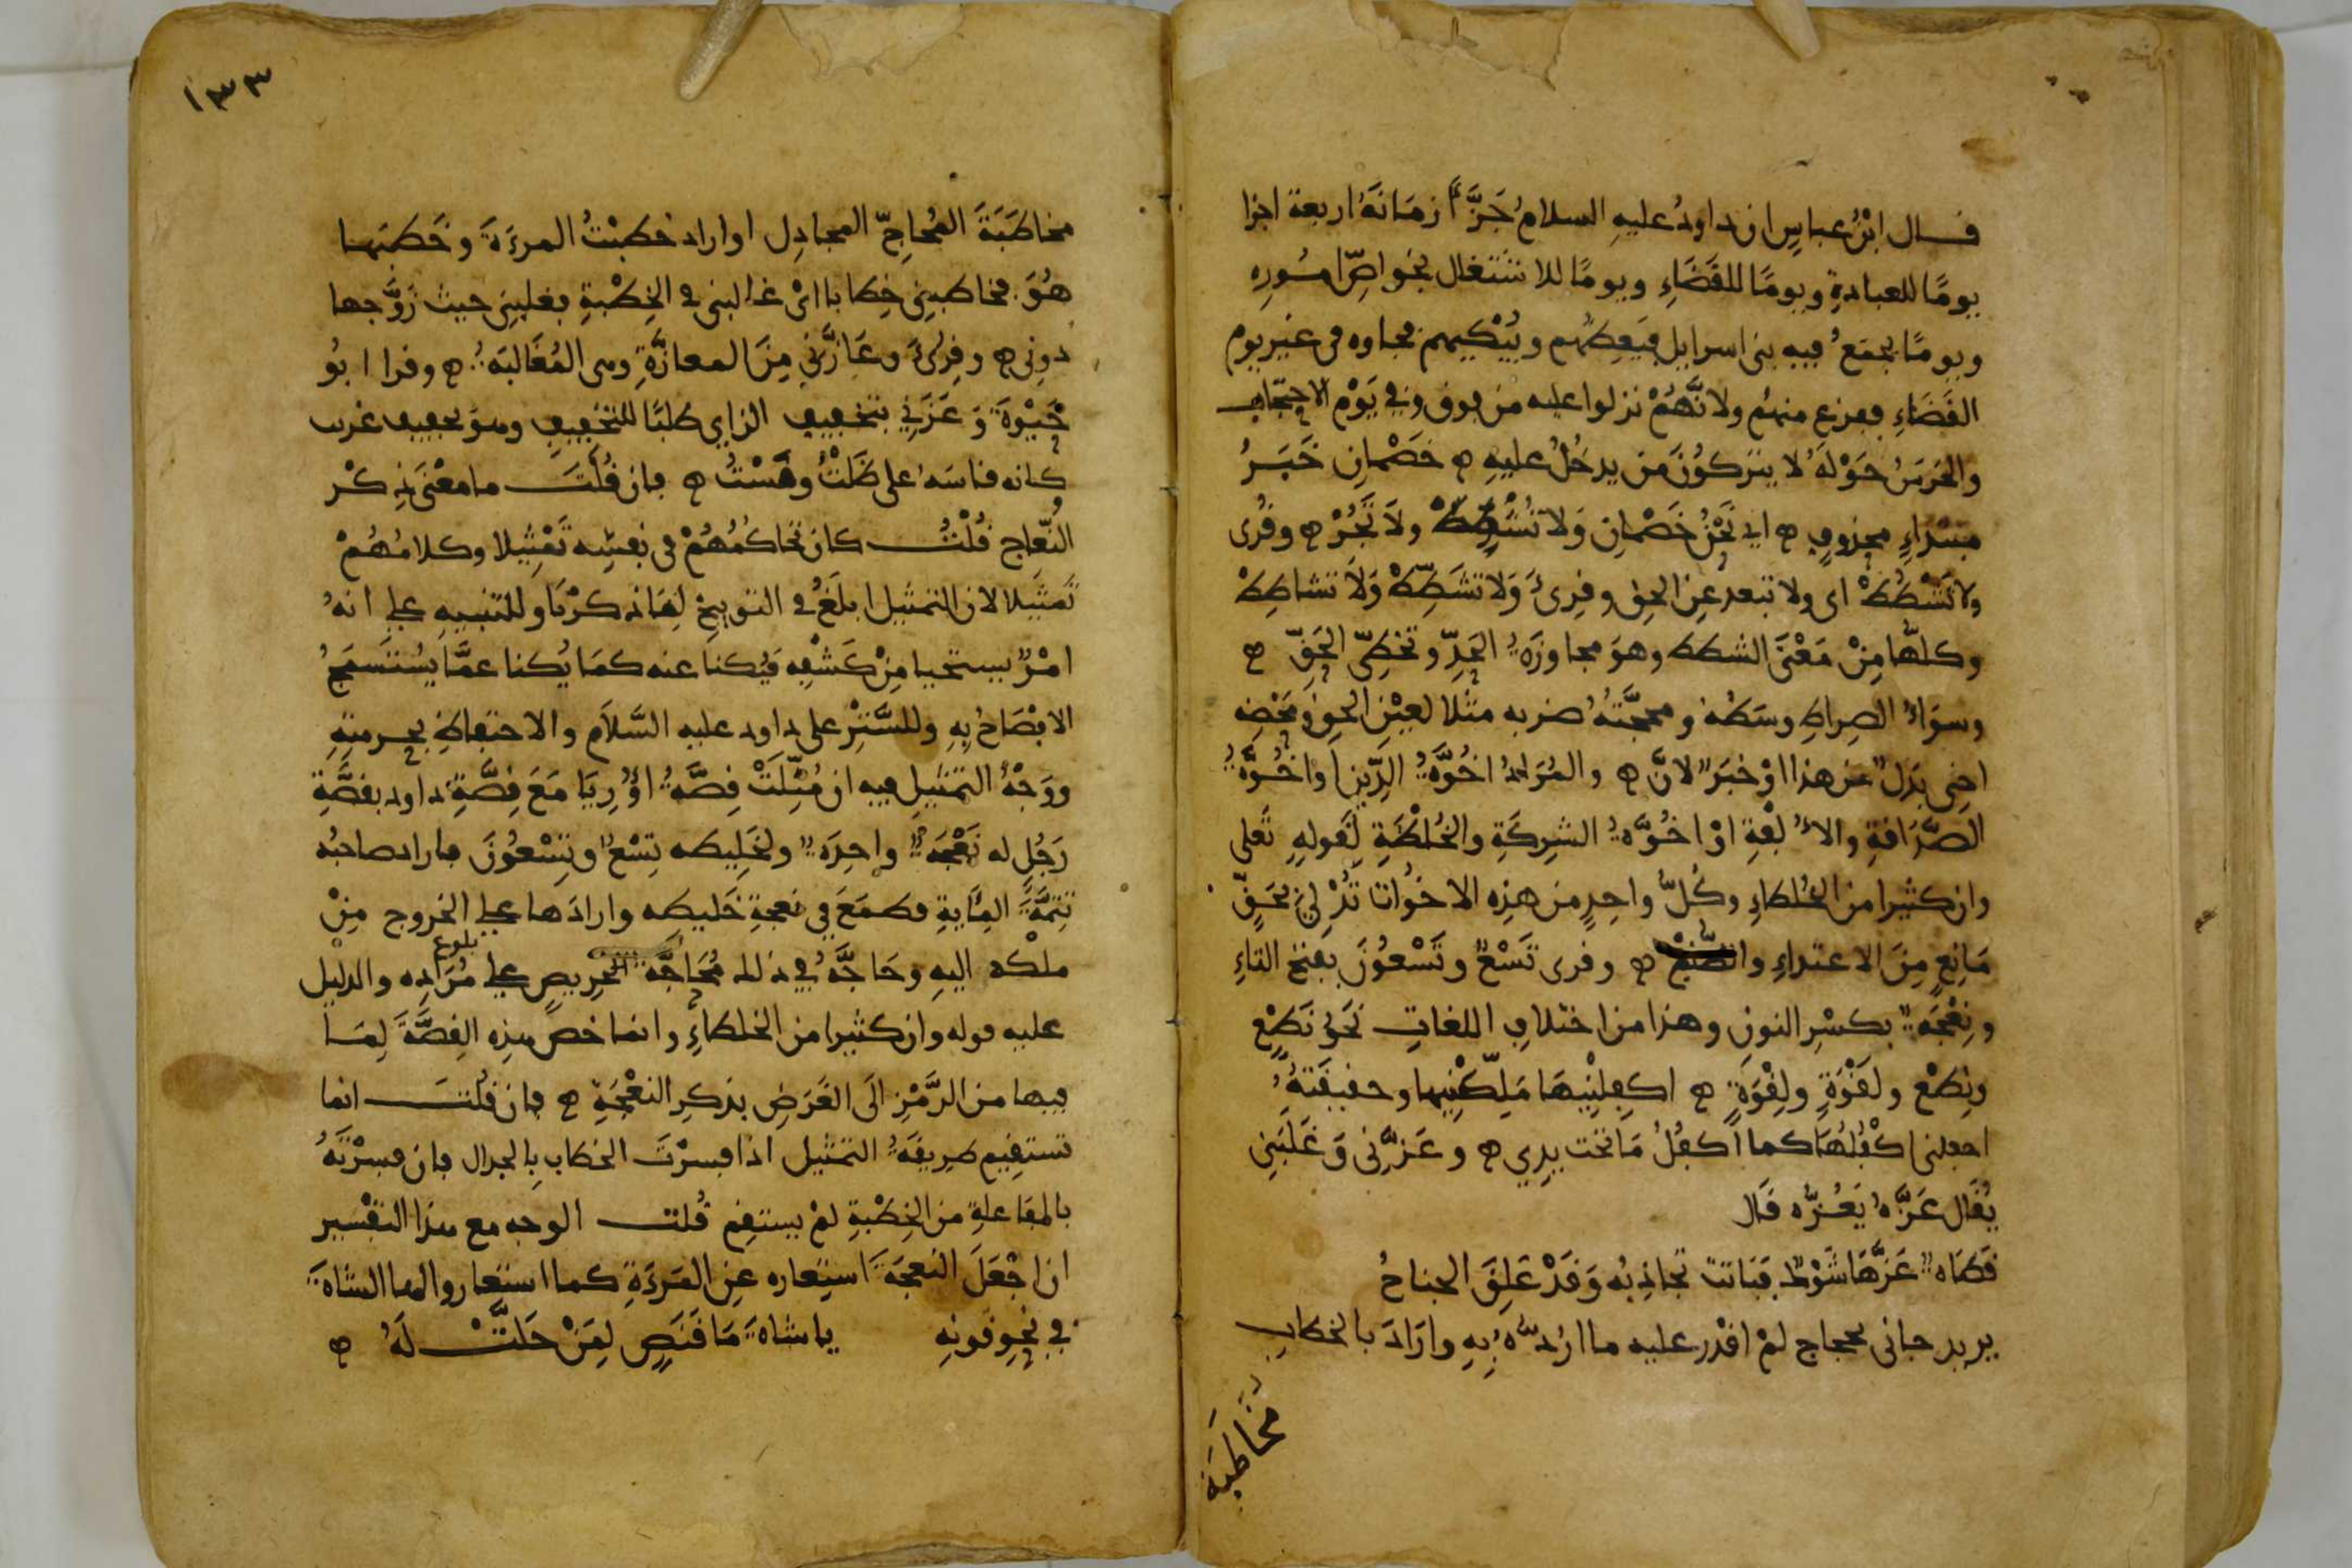 قال ابْنُ عباسٍ ان داودُ عليهِ السلامُ جَزَّأَ زمَانَهُ اربعة اجزا
يومًا للعبادةِ ويومًا للقَضَاءِ ويومًا للاشتغال بخواصِّ امُورِهِ
ويومًا يجمَعُ فيه بنى اسرايل فيَعِظُهُم ويُبْكِيهم فجاوه فى غير يوم
القَضَاءِ ففزع منهُم ولانَّهُمْ نزلوا عليه من فوق وفي يَوْم الاحتجاب
والحَرَسُ حَوْلَهُ لا يتركوُنَ مَن يدخُلُ عليهِ ۞ خصْمانِ خَبَرُ
مبتدَاءٍ محذوفٍ ۞ اى نَحْنُ خَصْمانِ وَلا تُشْطِطْ ولاَ تَجُرْ ۞ وقُرى
ولا تَشْطُطْ اى ولا تبعد عنِ الحق وقرِئَ وَلا تشَطِّطْ وَلاَ تشاطِطْ
وكلهَّا مِنْ مَعْنَى الشطط وهوَ مجاوزَةُ الحَدِّ وتخطِّى الحَقِّ ۞
وسَوَاءُ الصِراطِ وسَطُهُ ومحجَّتُهُ ضربه مثلا لعَيْنِ الحق ومَحْضِه
اخِى بدَلٌ من هذا اوْ خبَرٌ لانَّ ۞ والمُرَادُ اخُوَّةُ الدِّينِ اواخُوَّةُ
الصَّدَاقةِ والاُلفَةِ اوْ اخُوَّةُ الشرِكَةِ والخُلْطَةِ لقَولهِ تَعلى
وان كثيرا من الخُلطاءِ وكُلُّ واحِدٍ من هذِه الاخُوَّات تُدْلِى بحَقٍّ
مَانِعٍ مِنَ الاعتداءِ والظلم ۞ وقرى تَسْعٌ وتَسْعوُنَ بفتح التاءِ
ونِعْجَةٌ بكسْرِ النونِ وهذا من اختلاف اللغاتِ نَحْوُ نَطْعٍ
ونِطْع ولَقْوَةٍ ولِقْوَةٍ ۞ اكفِلْنِيهَا مَلِّكْنِيها وحقيقَتهُ
اجعلنى اكْفُلُهَا كما اكفُلُ مَا تحْت يدِي ۞ وعَزَّنِى وَغَلَبَنِي
يُقَال عَزَّهُ يَعُزُّه قال
قَطَاةٌ عَزَّهَا شَرَكٌ فَبَاتتْ تجاذِبُه وَقَدْ عَلِقَ الجناحُ
يريد جانى بحجاج لمْ اقْدر عليه ما ارُدُّهُ بِهِ وارَادَ بالخطابِ
مُخَاطَبَة
١٣٣
مخاطَبَةَ المُحاجِّ المجادِل اواراد خطبْتُ المرءةَ وخَطَبَها
هُوَ فخاطبنِى خِطابا اىْ غالبنى فى الخِطْبةِ فغلبنى حيث زَوَّجها
دونى ۞ وقرِئَ وعَازَّنى مِنَ المعازَّةِ وهى المُغَالبَة ۞ وقرا ابُو
حَيْوةَ وَعَزَنِي بتخفيف الزاي طلبًا للتخفيفِ وهوَ تخفيف غريب
وكانه قاسَه على ظَلْتُ ومَسْتُ ۞ فان قُلْتَ ما معْنَى ذِكْر
النِّعاج قُلْتُ كان تحاكُمُهُمْ فى نفسِه تَمْثِيلا وكلامُهُمْ
تمثيلا لان التمثيل ابلغُ فى التوبيخ لِمَا ذكرْنَا وللتنبيهِ على انهُ
امْرٌ يستحيا مِنْ كَشْفِه فيُكنا عنه كمَا يُكنا عمَّا يُستَسمَجُ
الافْصَاحُ بِهِ وللسَّتْرِ على داود عليه السَّلاَم والاحتفاظِ بحرمتِهِ
ووَجْهُ التمثيلِ فيه ان مُثِّلَتْ قِصَّةُ اوُرِيَا مَعَ قِصَّةِ داود بقصَّةِ
رَجُلٍ له نَعْجَةٌ واحِدَةٌ ولخَلِيطه تِسْعٌ وتِسْعُوْنَ فاراد صاحبُه
تتِمَّةَ المِايةِ فطمَعَ فِي نعجةِ خَليطِه وارادَها على الخروج مِنْ
ملْكها اليهِ وحَاجَّهُ فِي ذلك مُحَاجَّةَ الحَرِيصِ على بلوغ مُرَادِه والدليل
عليه قوله وان كثيرا من الخلطاءِ وانما خصَّ هذِه القِصَّةَ لِمَا
فيها من الرَّمْزِ الَى الغَرَضِ بذكرِ النعْجَةِ ۞ فان قُلتَ انما
تستقِيم طرِيقَةُ التمثيل اذا فسرْتَ الخطاب بِالجدال فان فسرْتَهُ
بالمفاعلةِ من الخِطْبةِ لمْ يستقِم قُلتُ الوجه مع هذا التفْسير
ان اجْعَلَ النعجَةَ استعاره عنِ المَرءَةِ كما استعاروا لها الشاةَ
في نحو قونهِ يا شاةَ مَا قَنَصٍ لِمَنْ حَلتَّْ لَهُ ۞